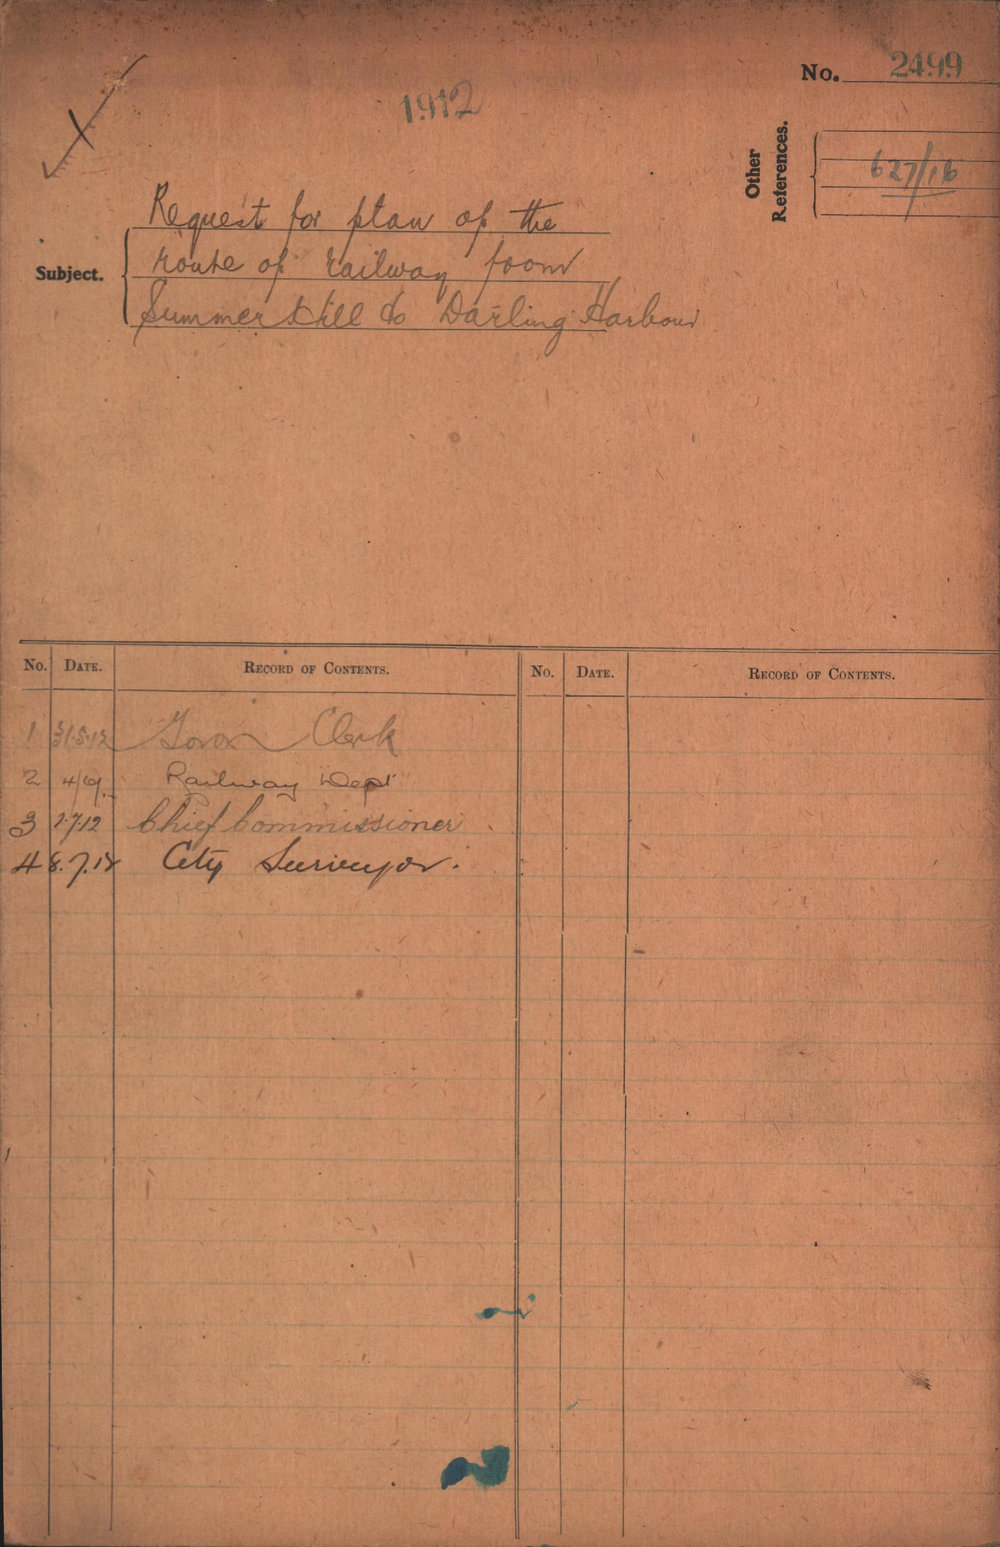 No. 2499
1912
Other References.
627/16
Subject.
Request for plan of the
route of railway from
Summer Hill to Darling Harbour
No. DATE. RECORD OF CONTENTS. No. DATE. RECORD OF CONTENTS.
1 31.5.12 Town Clerk
2 4/6/ Railway Dept
3 1.7.12 Chief Commissioner
4 8.7.12 City Surveyor.